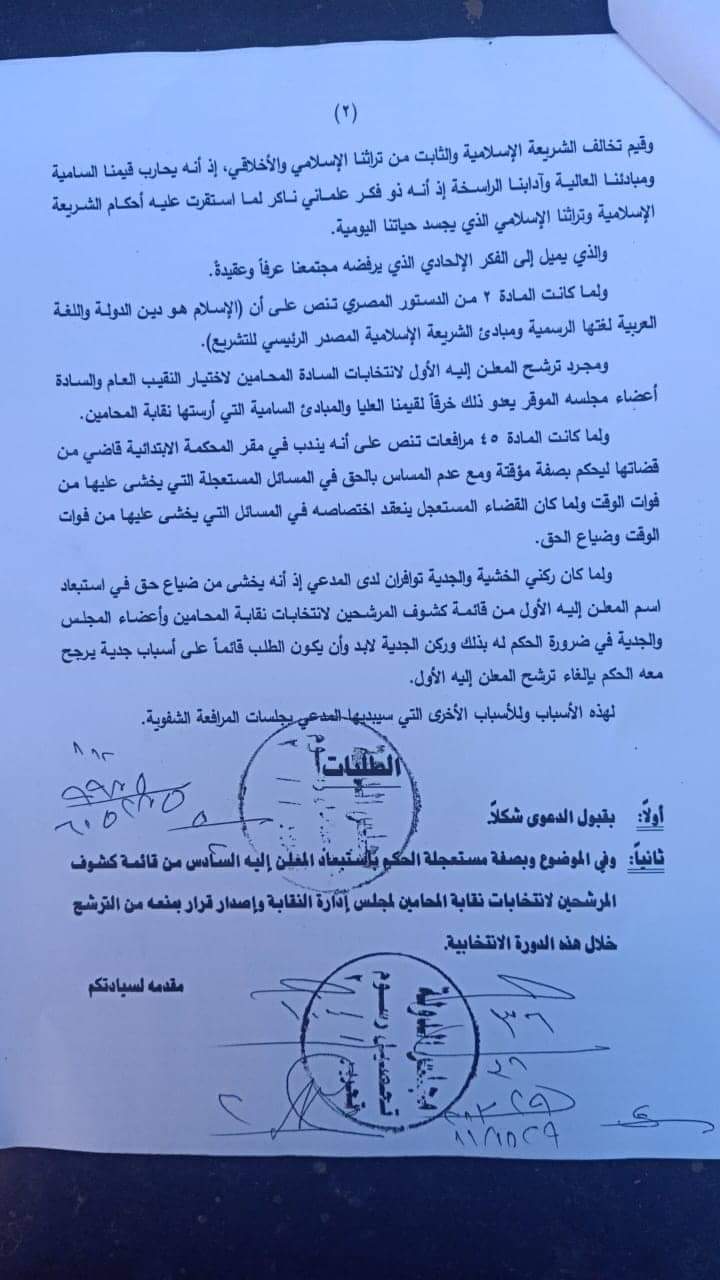 (٢)
وقيم تخالف الشريعة الإسلامية والثابت من تراثنا الإسلامي والأخلاقي، إذ أنه يحارب قيمنا السامية
ومبادئنا العالية وآدابنا الراسخة إذ أنه ذو فكر علماني ناكر لما استقرت عليه أحكام الشريعة
الإسلامية وتراثنا الإسلامي الذي يجسد حياتنا اليومية.
والذي يميل إلى الفكر الإلحادي الذي يرفضه مجتمعنا عرفاً وعقيدةً.
ولما كانت المادة ٢ من الدستور المصري تنص على أن (الإسلام هو دين الدولة واللغة
العربية لغتها الرسمية ومبادئ الشريعة الإسلامية المصدر الرئيسي للتشريع).
ومجرد ترشح المعلن إليه الأول لانتخابات السادة المحامين لاختيار النقيب العام والسادة
أعضاء مجلسه الموقر يعدو ذلك خرقاً لقيمنا العليا والمبادئ السامية التي أرستها نقابة المحامين.
ولما كانت المادة ٤٥ مرافعات تنص على أنه يندب في مقر المحكمة الابتدائية قاضي من
قضاتها ليحكم بصفة مؤقتة ومع عدم المساس بالحق في المسائل المستعجلة التي يخشى عليها من
فوات الوقت ولما كان القضاء المستعجل ينعقد اختصاصه في المسائل التي يخشى عليها من فوات
الوقت وضياع الحق.
ولما كان ركني الخشية والجدية توافران لدى المدعي إذ أنه يخشى من ضياع حق في استبعاد
اسم المعلن إليه الأول من قائمة كشوف المرشحين لانتخابات نقابة المحامين وأعضاء المجلس
والجدية في ضرورة الحكم له بذلك وركن الجدية لابد وأن يكون الطلب قائماً على أسباب جدية يرجح
معه الحكم بإلغاء ترشح المعلن إليه الأول.
لهذه الأسباب وللأسباب الأخرى التي سيبديها المدعي بجلسات المرافعة الشفوية.
الطلبات
أولاً: بقبول الدعوى شكلاً.
ثانياً: وفي الموضوع وبصفة مستعجلة الحكم باستبعاد المعلن إليه السادس من قائمة كشوف
المرشحين لانتخابات نقابة المحامين لمجلس إدارة النقابة وإصدار قرار بمنعه من الترشح
خلال هذه الدورة الانتخابية.
مقدمه لسيادتكم
مجلس الدولة
تحصيل رسوم